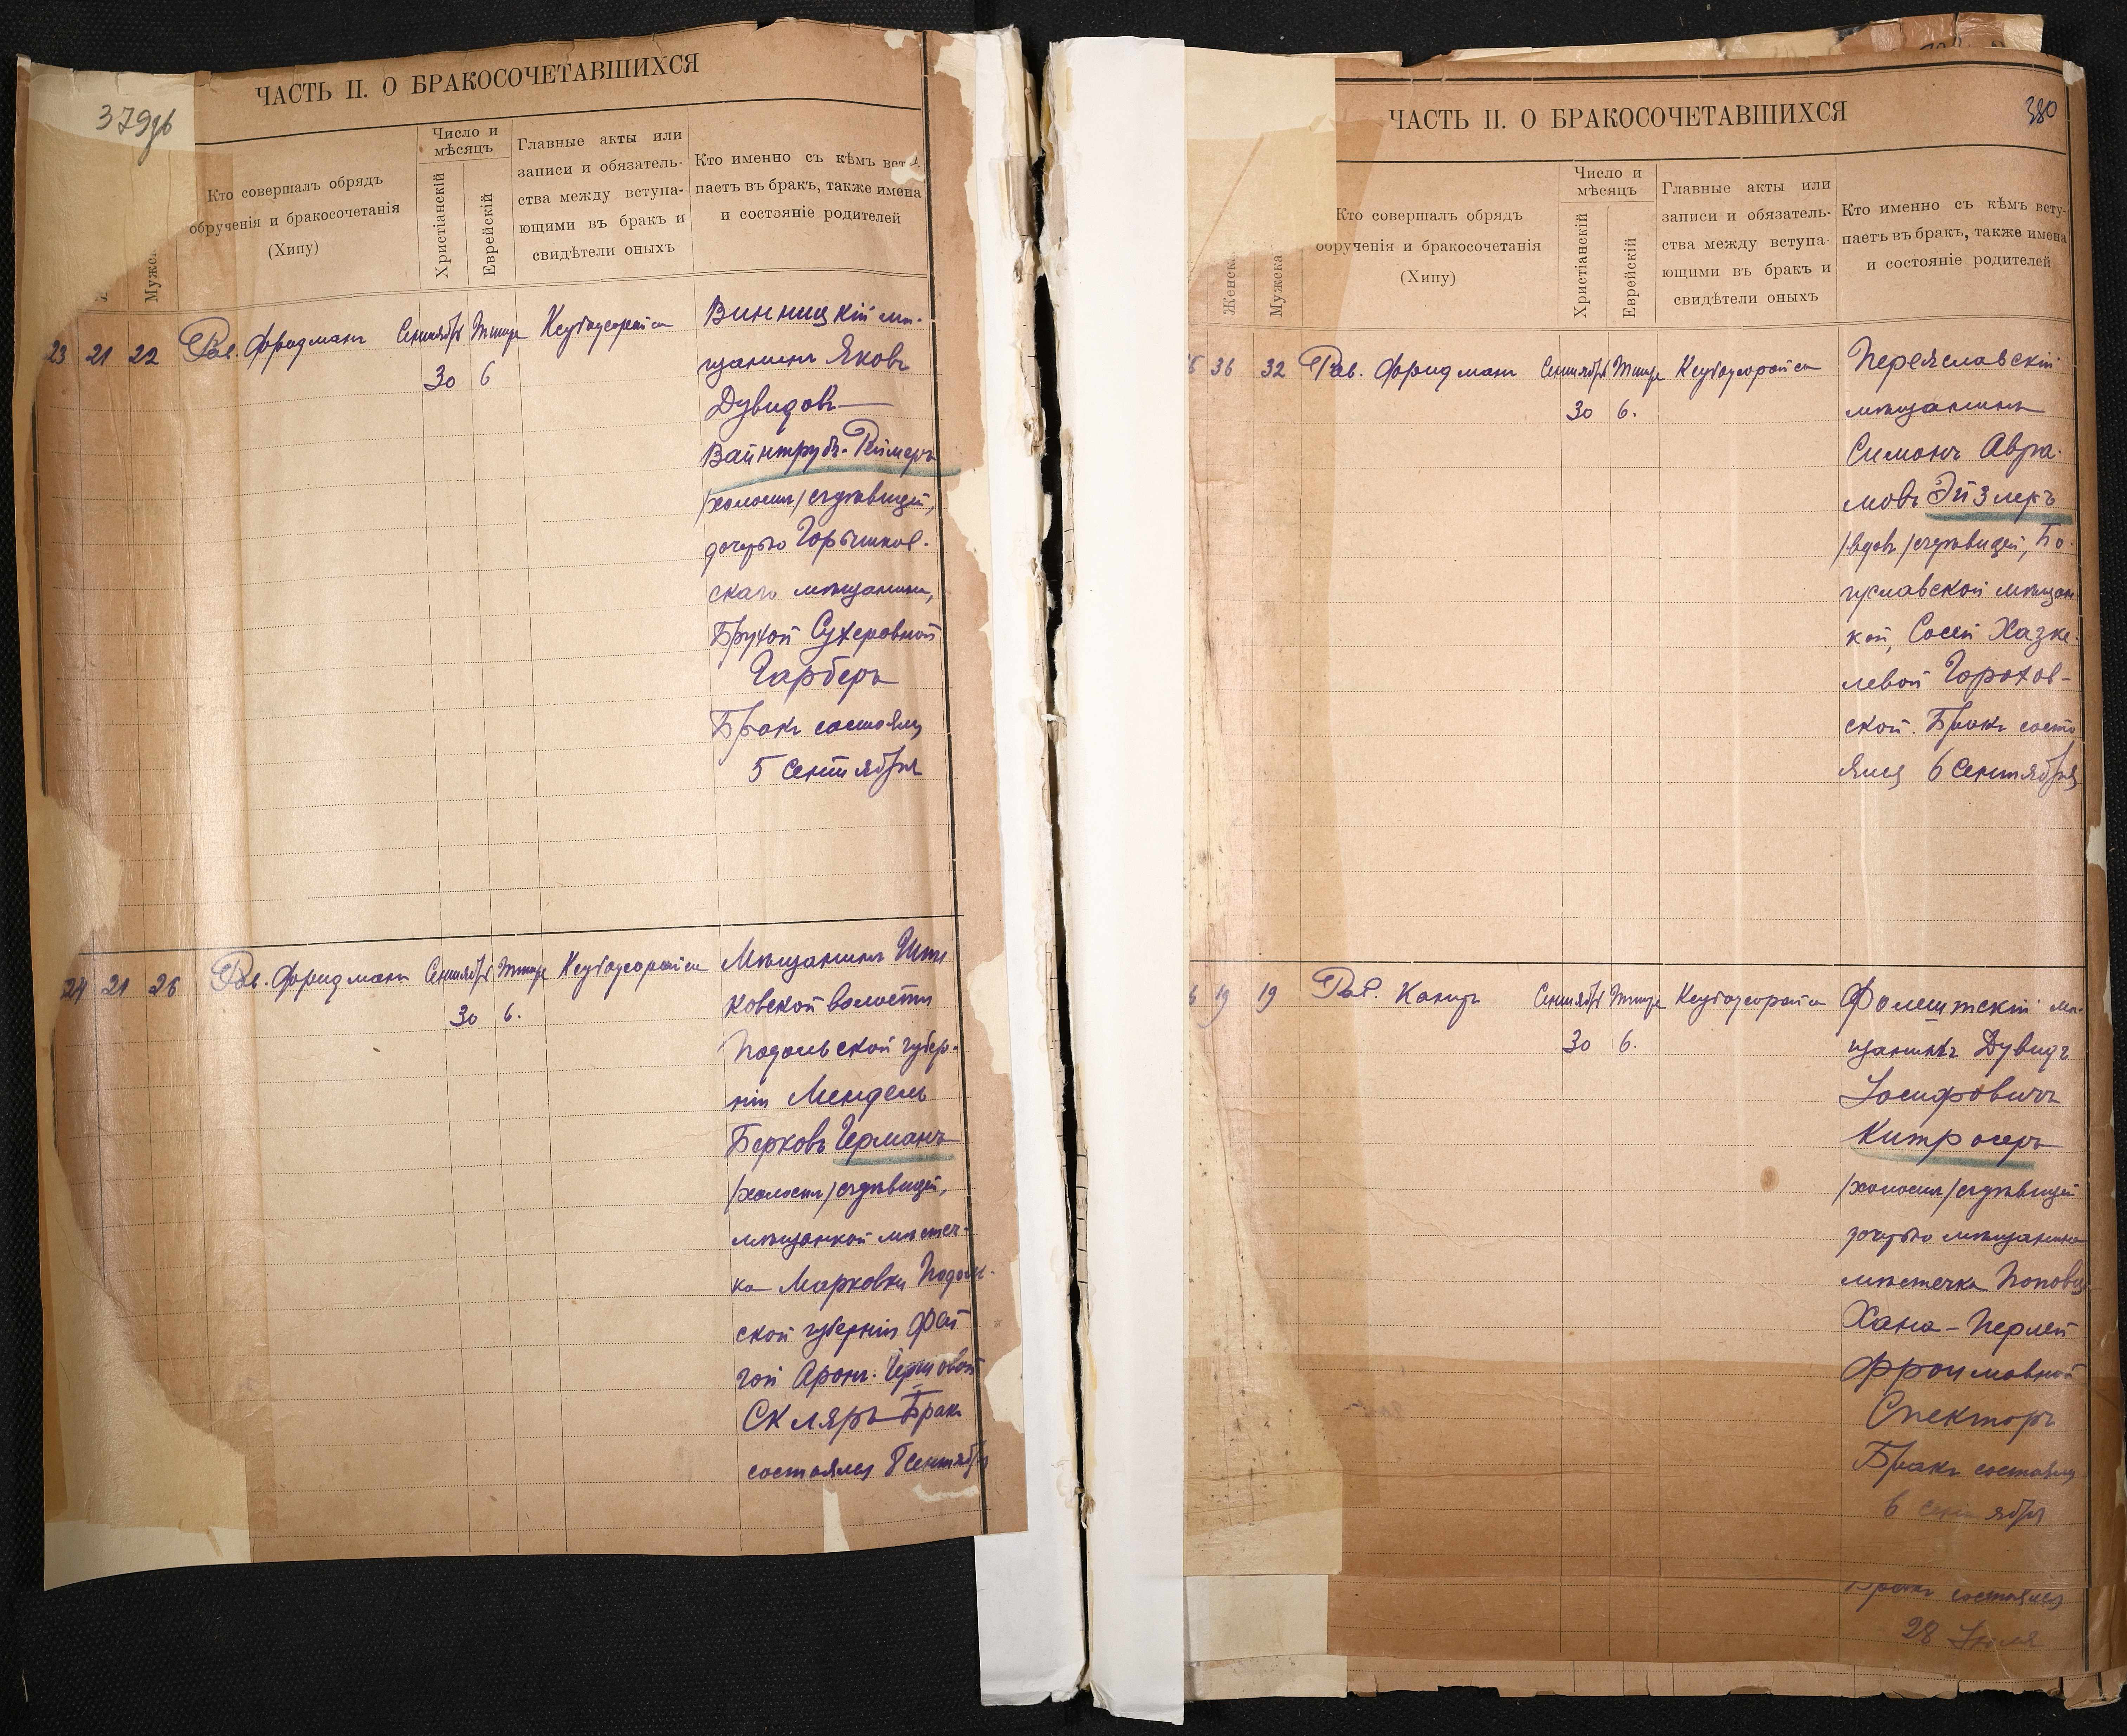 379об
ЧАСТЬ II. О БРАКОСОЧЕТАВШИХСЯ
Мужс
Кто совершалъ обрядъ
обрученія и бракосочетанія
(Хипу)
Число и
мѣсяцъ
Христіанскій
Еврейскій
Главные акты или
записи и обязатель-
ства между вступа-
ющими въ бракъ и
свидѣтели оныхъ
Кто именно съ кѣмъ вст
паетъ въ бракъ, также имена
и состояніе родителей
23 21 22 Рав. Фридманъ Сентябрь Тишре
30 6
Винницкій мѣ-
щанинъ Яковъ
Дувидовъ
Вайнтрубъ-Реймеръ
/холост/ съ дѣвицей,
дочерью Горышков-
скаго мѣщанина,
Брухой Сухеровной
Гарберъ
Бракъ состоялся
5 Сентября
24 21 26 Рав. Фридманъ Сентябрь Тишре
30 6.
Мѣщанинъ
ковской волости
Подольской губер-
ніи Мендель
Берковъ Германъ
/холост/ съ дѣвицей,
мѣщанкой мѣстеч-
ка Марковки Подоль-
ской губерніи Фей
гой Арон. Герш овой
Скляръ Бракъ
состоялся Сентября
380
ЧАСТЬ II. О БРАКОСОЧЕТАВШИХСЯ
Женска
Мужска
Кто совершалъ обрядъ
обрученія и бракосочетанія
(Хипу)
Число и
мѣсяцъ
Христіанскій
Еврейскій
Главные акты или
записи и обязатель-
ства между вступа-
ющими въ бракъ и
свидѣтели оныхъ
Кто именно съ кѣмъ всту-
паетъ въ бракъ, также имена
и состояніе родителей
36 32 Рав. Фридманъ Сентябрь Тишре
30 6.
Переяславскій
мѣщанинъ
Симонъ Авра-
мовъ Эйзлеръ
/вдов/ съ дѣвицей, Бо-
гуславской мѣщан
кой, Сосей Хазке-
левой Горохов-
ской. Бракъ состо
ялся 6 Сентября
19 19 Рав. Каницъ Сентябрь Тишре
30 6.
Фолештскій мѣ-
щанинъ Дувидъ
Іосифовичъ
Китросеръ
/холост/ съ дѣвицей
дочерью мѣщанина
мѣстечка Поповц
Хана-Перлей
Фроимовной
Спекторъ
Бракъ состоялся
6 сентября
Бракъ состоялся
28 Іюля